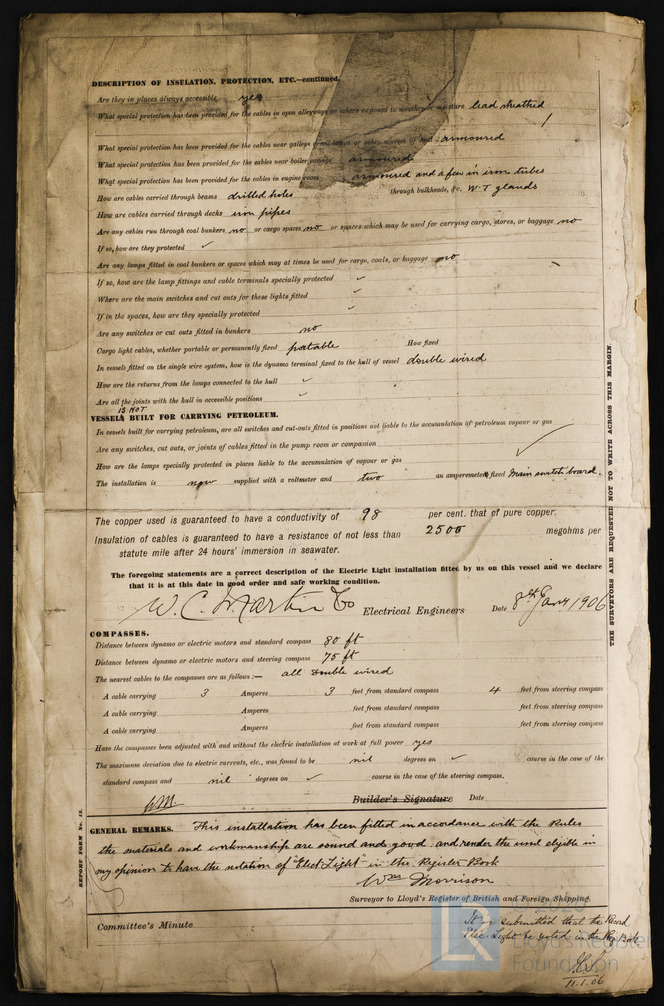 DESCRIPTION OF INSULATION, PROTECTION, ETC.—continued.
Are they in places always accessible yes
What special protection has been provided for the cables in open alleyways or where exposed to weather or moisture lead sheathed
What special protection has been provided for the cables near galleys or oil lamps or other sources of heat armoured
What special protection has been provided for the cables near boiler casings armoured
What special protection has been provided for the cables in engine room armoured and a few in iron tubes
How are cables carried through beams drilled holes through bulkheads, &c. W.T glands
How are cables carried through decks iron pipes
Are any cables run through coal bunkers no or cargo spaces no or spaces which may be used for carrying cargo, stores, or baggage no
If so, how are they protected ✓
Are any lamps fitted in coal bunkers or spaces which may at times be used for cargo, coals, or baggage no
If so, how are the lamp fittings and cable terminals specially protected ✓
Where are the main switches and cut outs for these lights fitted ✓
If in the spaces, how are they specially protected ✓
Are any switches or cut outs fitted in bunkers no
Cargo light cables, whether portable or permanently fixed portable How fixed
In vessels fitted on the single wire system, how is the dynamo terminal fixed to the hull of vessel double wired
How are the returns from the lamps connected to the hull ✓
Are all the joints with the hull in accessible positions ✓
IS NOT
VESSELS BUILT FOR CARRYING PETROLEUM.
In vessels built for carrying petroleum, are all switches and cut-outs fitted in positions not liable to the accumulation of petroleum vapour or gas
Are any switches, cut outs, or joints of cables fitted in the pump room or companion ✓
How are the lamps specially protected in places liable to the accumulation of vapour or gas
The installation is now supplied with a voltmeter and two an amperemeter, fixed Main switch board.
The copper used is guaranteed to have a conductivity of 98 per cent. that of pure copper.
Insulation of cables is guaranteed to have a resistance of not less than 2500 megohms per
statute mile after 24 hours' immersion in seawater.
The foregoing statements are a correct description of the Electric Light installation fitted by us on this vessel and we declare
that it is at this date in good order and safe working condition.
W. C. Martin & Co Electrical Engineers Date 8th Jany 1906
COMPASSES.
Distance between dynamo or electric motors and standard compass 80 ft
Distance between dynamo or electric motors and steering compass 75 ft
The nearest cables to the compasses are as follows:— all double wired
A cable carrying 3 Amperes 3 feet from standard compass 4 feet from steering compass
A cable carrying Amperes feet from standard compass feet from steering compass
A cable carrying Amperes feet from standard compass feet from steering compass
Have the compasses been adjusted with and without the electric installation at work at full power yes
The maximum deviation due to electric currents, etc., was found to be nil degrees on ✓ course in the case of the
standard compass and nil degrees on ✓ course in the case of the steering compass.
WM Builder's Signature Date
GENERAL REMARKS. This installation has been fitted in accordance with the Rules
the materials and workmanship are sound and good and render the vessel eligible in
my opinion to have the notation of "Elect Light" in the Register Book
Wm Morrison
Surveyor to Lloyd's Register of British and Foreign Shipping.
Committee's Minute
It is submitted that the Record
Elec. Light be noted in the Reg Book
11.1.06
THE SURVEYORS ARE REQUESTED NOT TO WRITE ACROSS THIS MARGIN.
REPORT FORM No. 13.
Lloyd's Register
Foundation